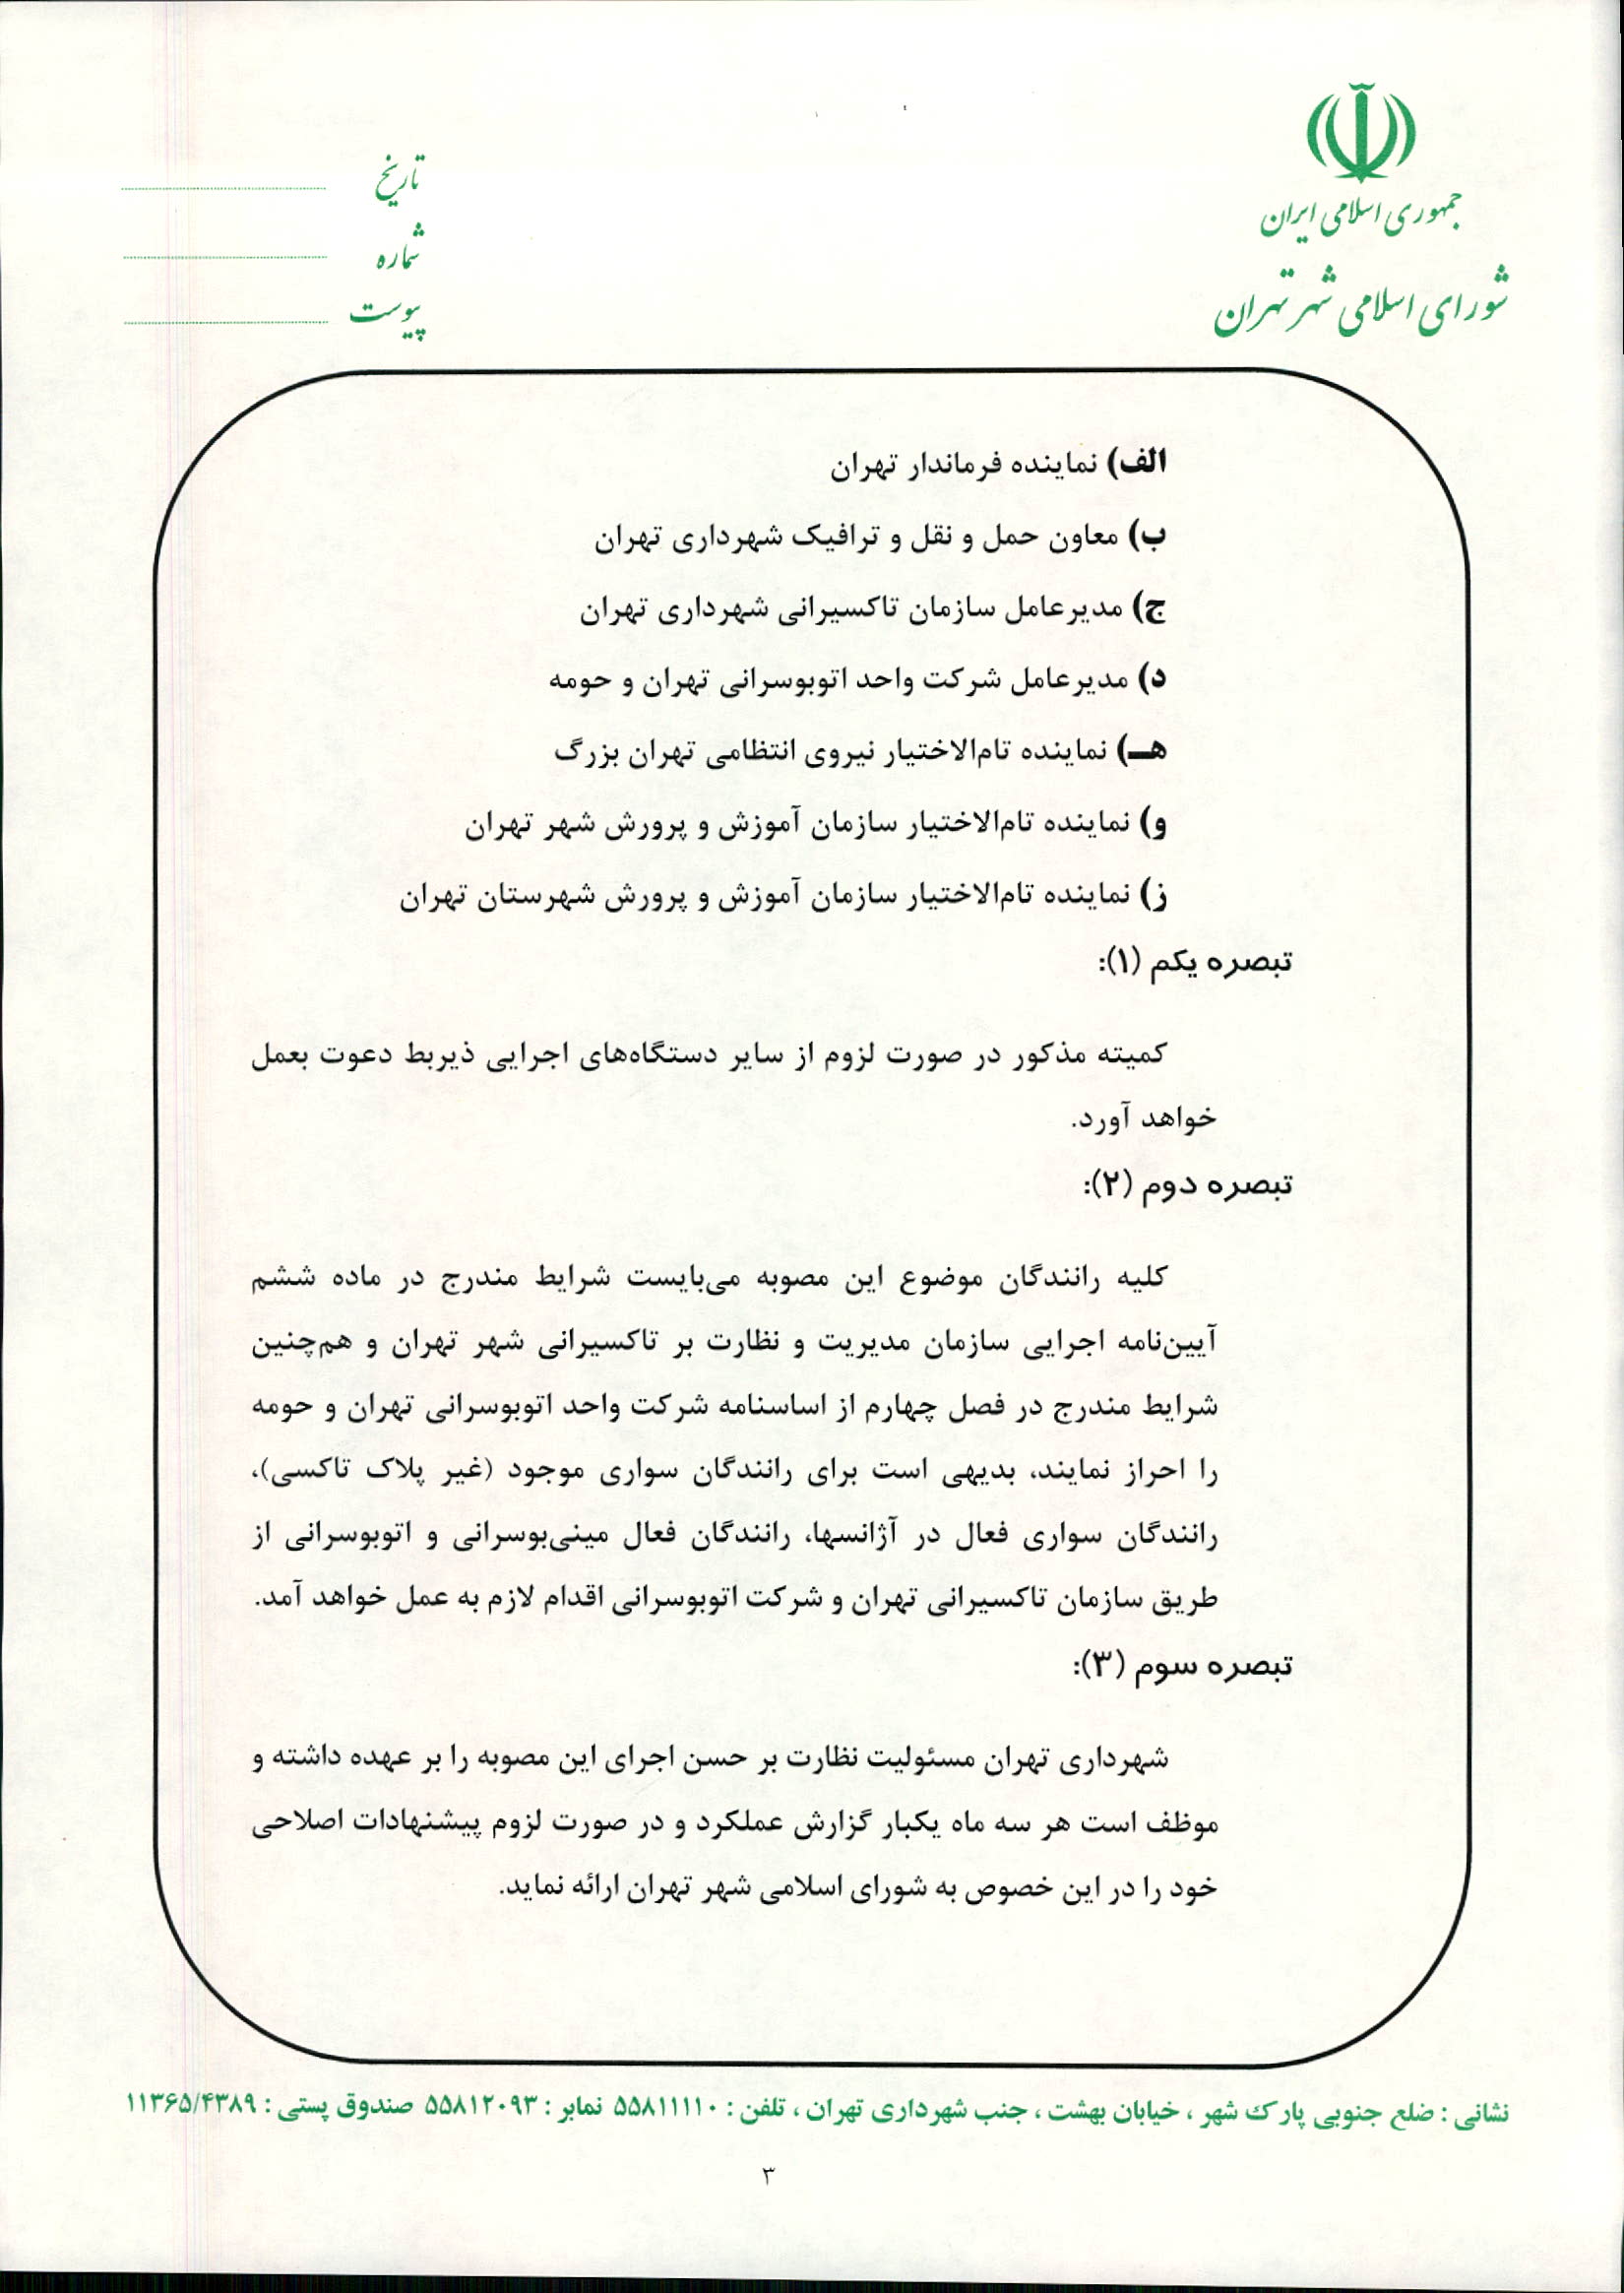 جمهوری اسلامی ایران
شورای اسلامی شهر تهران
تاریخ
شماره
پیوست
الف) نماینده فرماندار تهران
ب) معاون حمل و نقل و ترافیک شهرداری تهران
ج) مدیرعامل سازمان تاکسیرانی شهرداری تهران
د) مدیرعامل شرکت واحد اتوبوسرانی تهران و حومه
هـ) نماینده تام‌الاختیار نیروی انتظامی تهران بزرگ
و) نماینده تام‌الاختیار سازمان آموزش و پرورش شهر تهران
ز) نماینده تام‌الاختیار سازمان آموزش و پرورش شهرستان تهران
تبصره یکم (۱):
کمیته مذکور در صورت لزوم از سایر دستگاه‌های اجرایی ذیربط دعوت بعمل
خواهد آورد.
تبصره دوم (۲):
کلیه رانندگان موضوع این مصوبه می‌بایست شرایط مندرج در ماده ششم
آیین‌نامه اجرایی سازمان مدیریت و نظارت بر تاکسیرانی شهر تهران و هم‌چنین
شرایط مندرج در فصل چهارم از اساسنامه شرکت واحد اتوبوسرانی تهران و حومه
را احراز نمایند، بدیهی است برای رانندگان سواری موجود (غیر پلاک تاکسی)،
رانندگان سواری فعال در آژانسها، رانندگان فعال مینی‌بوسرانی و اتوبوسرانی از
طریق سازمان تاکسیرانی تهران و شرکت اتوبوسرانی اقدام لازم به عمل خواهد آمد.
تبصره سوم (۳):
شهرداری تهران مسئولیت نظارت بر حسن اجرای این مصوبه را بر عهده داشته و
موظف است هر سه ماه یکبار گزارش عملکرد و در صورت لزوم پیشنهادات اصلاحی
خود را در این خصوص به شورای اسلامی شهر تهران ارائه نماید.
نشانی : ضلع جنوبی پارک شهر ، خیابان بهشت ، جنب شهرداری تهران ، تلفن : ۵۵۸۱۱۱۱۰ نمابر : ۵۵۸۱۲۰۹۳ صندوق پستی : ۱۱۳۶۵/۴۳۸۹
۳